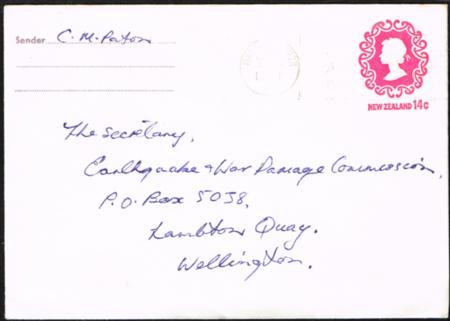 Sender C. M. Paton
NEW ZEALAND 14c
The Secretary,
Earthquake & War Damage Commission,
P.O. Box 5038,
Lambton Quay.
Wellington.